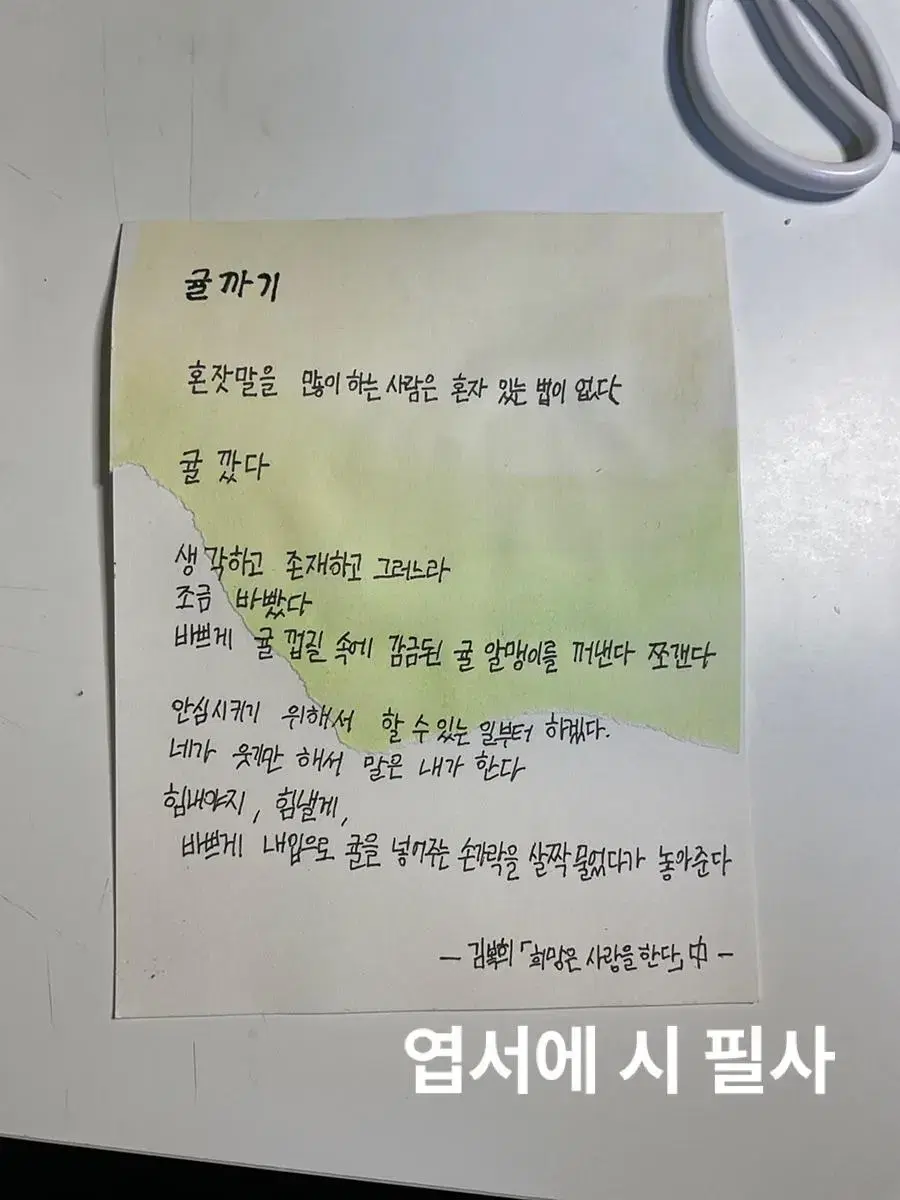 귤까기
혼잣말을 많이 하는 사람은 혼자 있는 법이 없다
귤 깠다
생각하고 존재하고 그러느라
조금 바빴다
바쁘게 귤 껍질 속에 감금된 귤 알맹이를 꺼낸다 쪼갠다
안심시키기 위해서 할 수 있는 일부터 하겠다.
네가 웃게만 해서 말은 내가 한다
힘내야지, 힘낼게,
바쁘게 내입으로 귤을 넣어주는 손가락을 살짝 물었다가 놓아준다
— 김복희 「희망은 사랑을 한다」 中 —
엽서에 시 필사